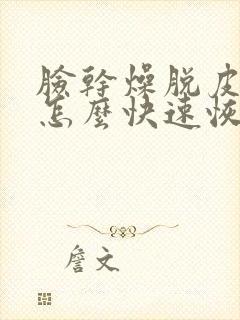 臉幹燥脫皮
怎麼快速恢
詹文